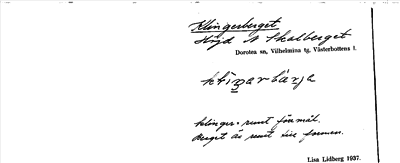 Klingerberget
Höjd N Skalberget
Dorotea sn, Vilhelmina tg. Västerbottens l.
klinger = runt föremål.
Berget är runt till formen.
Lisa Lidberg 1937.